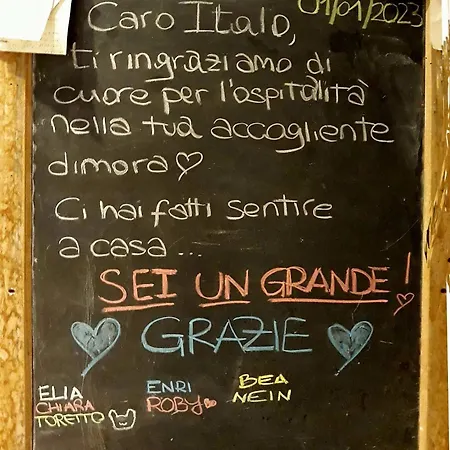 01/01/2023
Caro Italo,
ti ringraziamo di
cuore per l'ospitalità
nella tua accogliente
dimora♡
Ci hai fatti sentire
a casa ...
SEI UN GRANDE!
GRAZIE
ELIA
CHIARA
TORETTO
ENRI
ROBY
BEA
NEIN